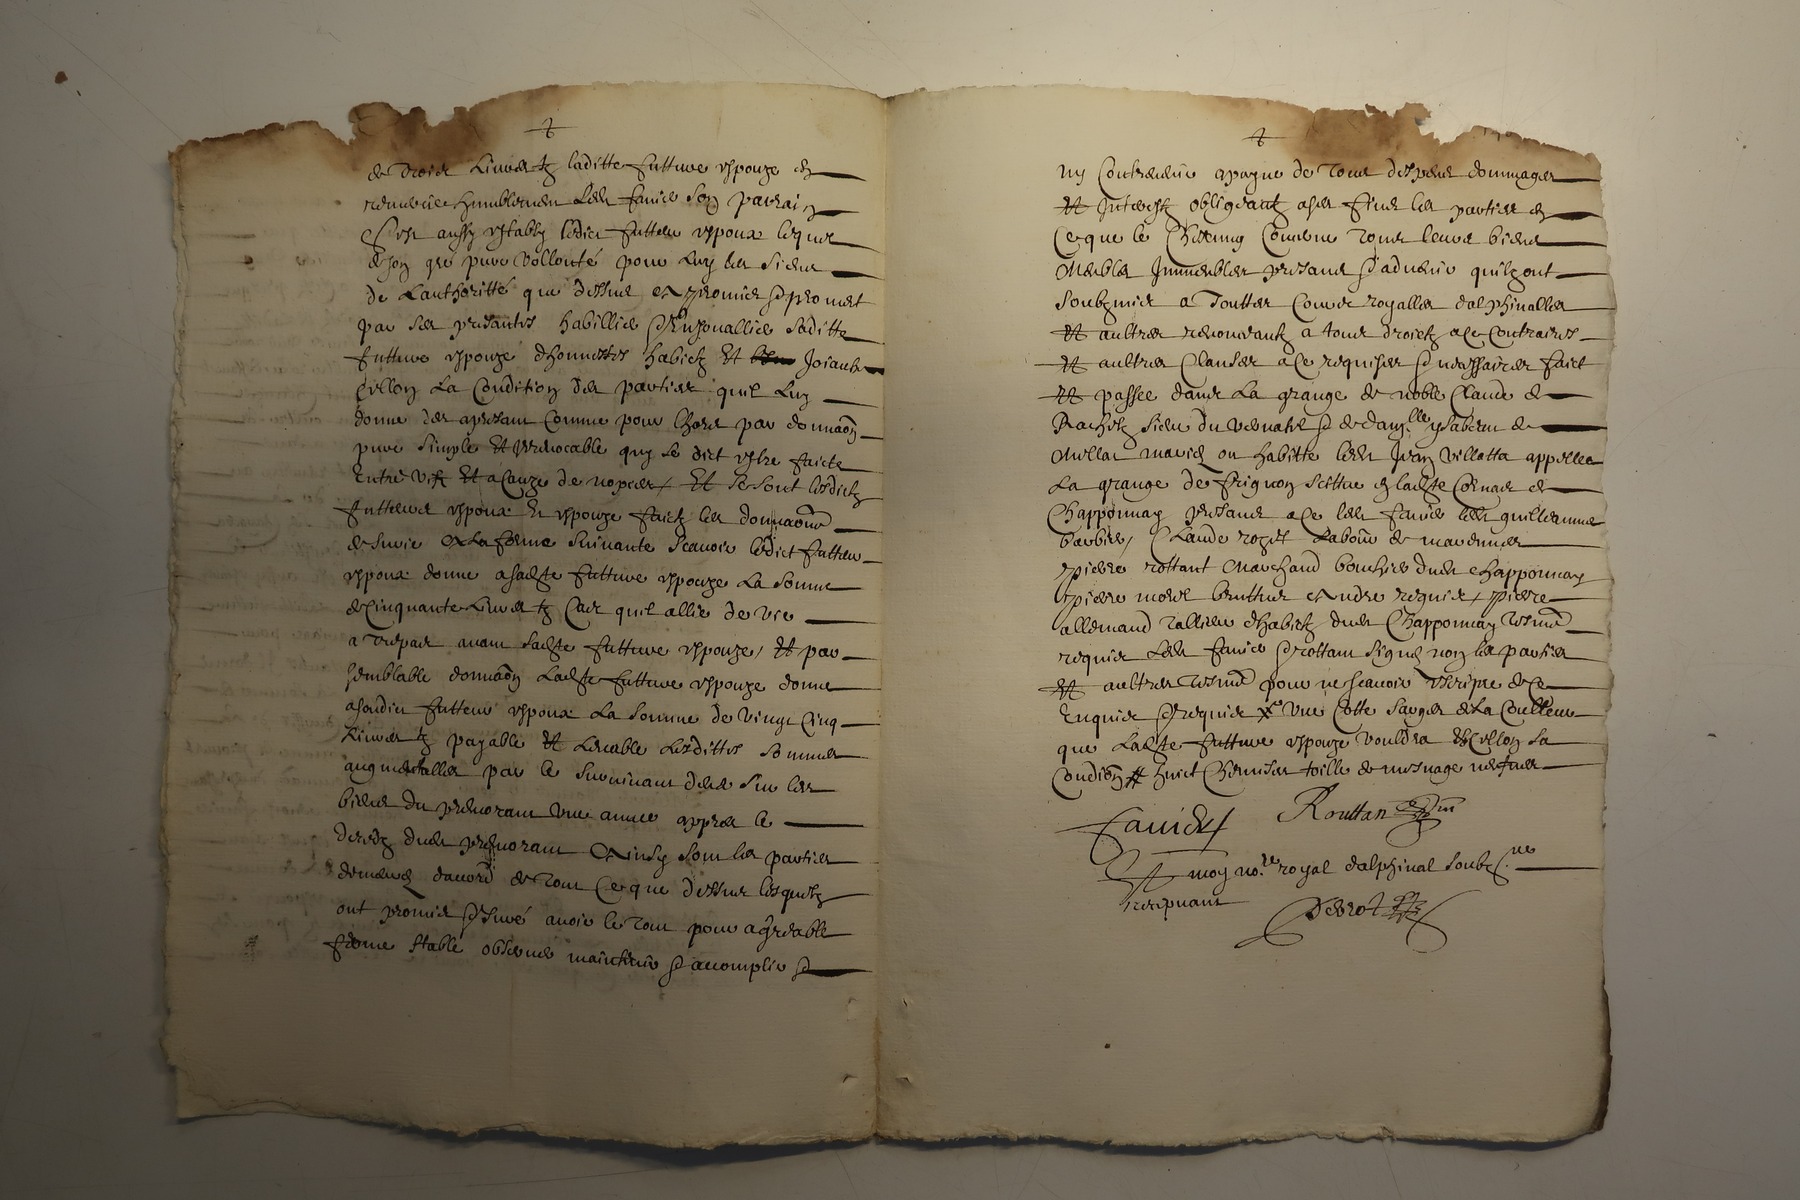 de trois livres tz laditte future espouze en
remercie humblement led Janier son parrain
C'est aussy estably ledict futteur espoux lequel
de son gré pure vollonté pour luy les siens
de lauthoritté que dessus a promis & promet
par ses presantes habillier & enjouallier saditte
future espouze d'honnestes habictz et Joiaulx
cellon la condition des parties quil luy
donne des apresant comme pour lhors par donnaon
pure simple et irrevocable quy se dict estre faicte
entre vifz et a cauze de nopces, et se sont lesdictz
futteurs espoux et espouze faictz les donnaons
de survie a la forme suivante scavoir ledict futteur
espoux donne a sadte future espouze la somme
de cinquante livres tz cas quil allie de vie
a trespas avant sadte future espouze, et par
semblable donnaon ladte future espouze donne
a sondict futteur espoux la somme de vingt cinq
livres tz payable et levable lesdittes sommes
augmentalles par le survivant deux sur les
biens du premorant une annee appres le
deces dud premorant Ainsy sont les parties
demeures daccord de tout ce que dessus lesquelz
ont promis & juré avoir le tout pour agreable
ferme stable observer maintenir & accomplir &
ny contrevenir a payne de tous despens dommages
et interestz obligeantz a ses fins les parties en
ce que le chescung concerne tous leurs biens
meubles immeubles presans & advenir quilz ont
soubzmis a touttes cours royalles dalphinalles
et aultres renonceantz a tous droictz a ce contraires
et aultres clauses a ce requises & necessaires faict
et passee dans la grange de noble Claude de
Rachetz sieur du vernatel & de damlle ysabeau de
mellat mariés ou habitte led Jean villatta appellee
la grange de frignon scittue en ladte comune de
Chapponnay presans a ce led Janier led guilleaume
barbier, Claude roget labour de marennes
pierre rottant marchand bouchier dud chapponnay
pierre morel bruthus Andre requis, pierre
allemand tallieur dhabictz dud Chapponnay tesmns
requis led Janier & rottant signés non les parties
et aultres tesmns pour ne scavoir escripre de ce
enquis & requis Xe une cotte sarges de la coulleur
que ladte future espouze vouldra et cellon sa
condion et huict chemises toille de mesnage nesfves
Janier Routtan
Et moy nore royal dalphinal soubzne
recepvant Perrot